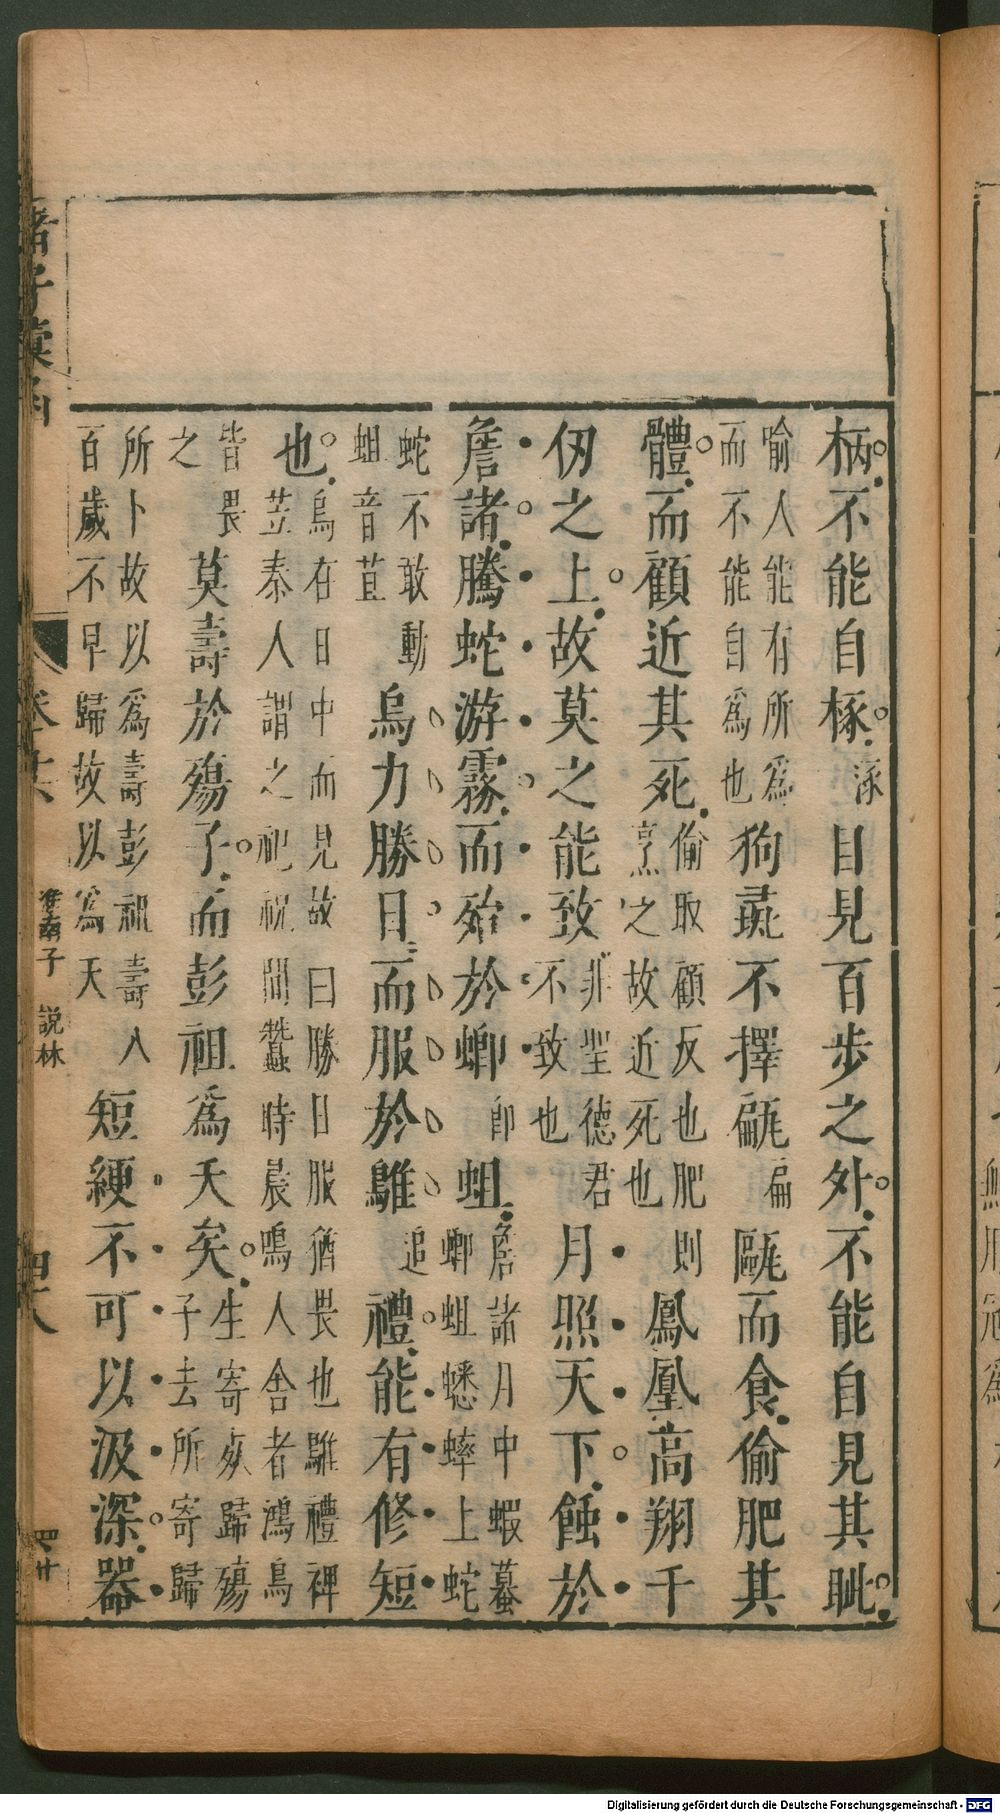 柄不能自椓涿目見百步之外不能自見其眦
喻人能有所爲
而不能自爲也
狗彘不擇甂扁甌而食偷肥其
體而顧近其死
偷取顧反也肥則
烹之故近死也
鳳凰高翔千
仞之上故莫之能致
非聖德君
不致也
月照天下蝕於
詹諸騰蛇游霧而殆於蝍即蛆
詹諸月中蝦蟇
蝍蛆蟋蟀上蛇
蛇不敢動
蛆音苴
烏力勝日而服於鵻追禮能有修短
也
烏在日中而見故曰勝日服猶畏也鵻禮裨
苙秦人謂之祀祝間蠶時晨鳴人舍者鴻鳥
皆畏
之
莫壽於殤子而彭祖爲夭矣
生寄死歸殤
子去所寄歸
所卜故以爲壽彭祖壽八
百歲不早歸故以爲夭
短綆不可以汲深器
諸子彙函
淮南子 説林
Digitalisierung gefördert durch die Deutsche Forschungsgemeinschaft - DFG